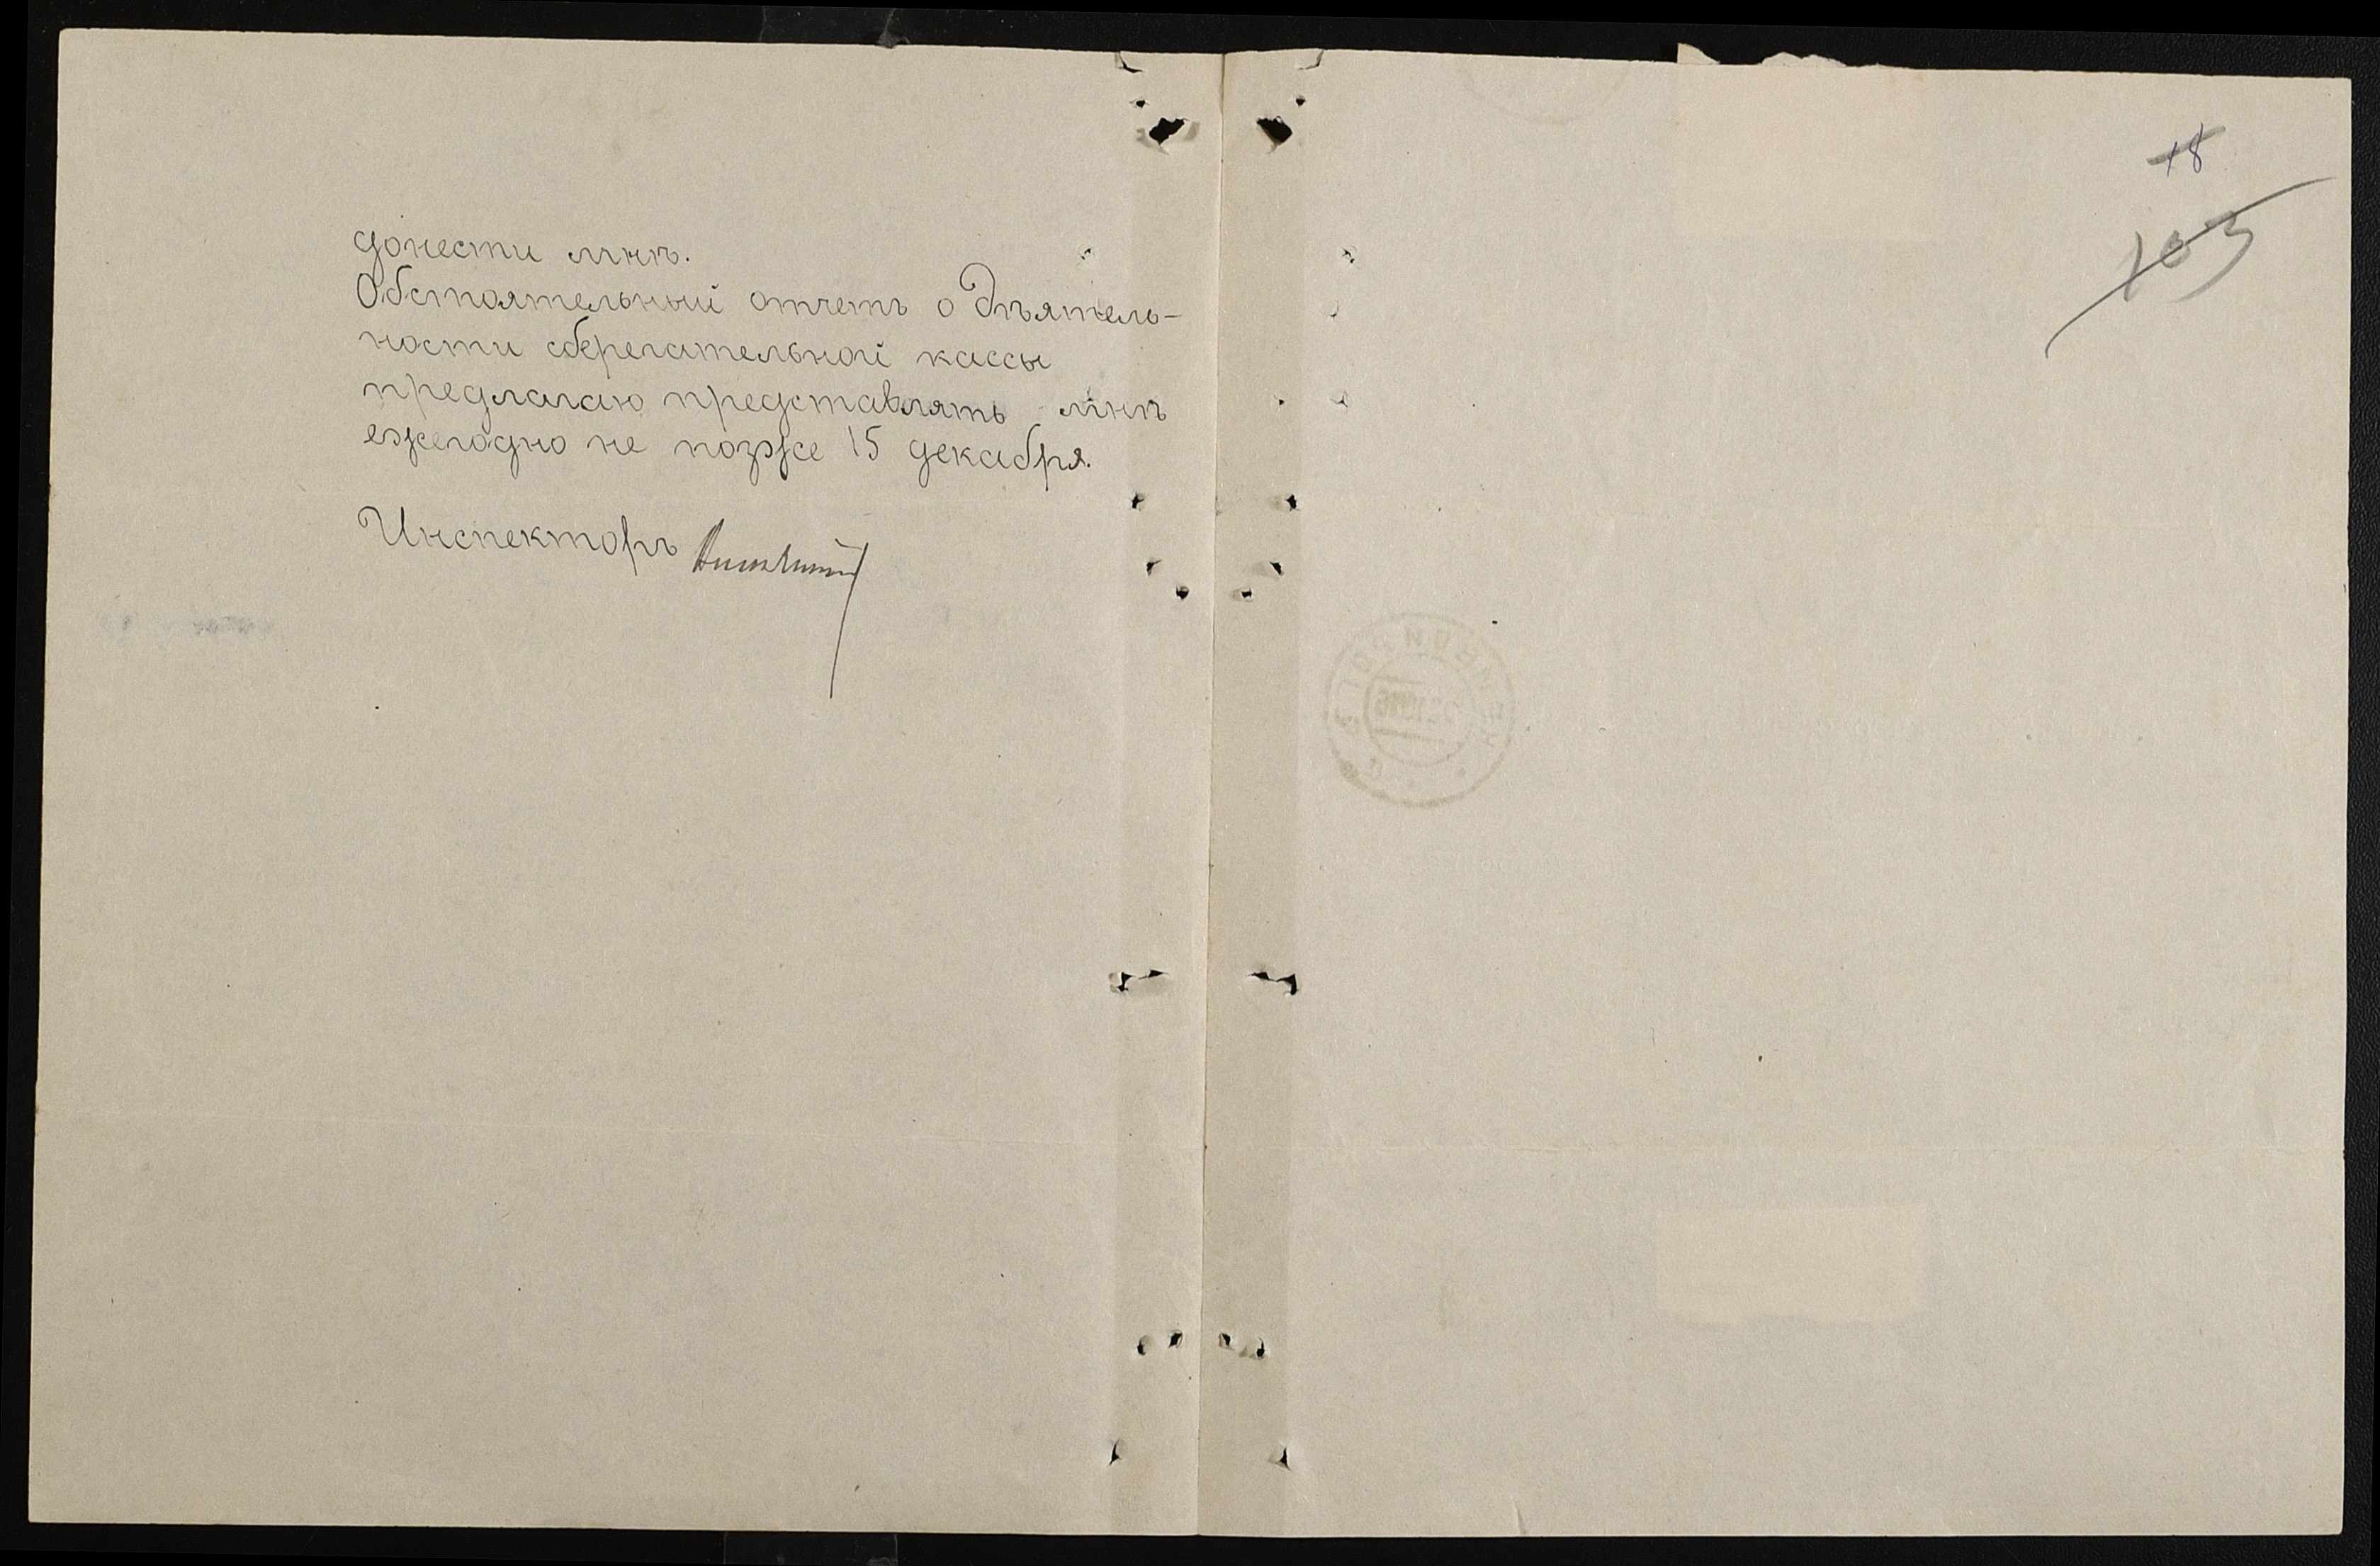 донести мнѣ.
Обстоятельный отчетъ о дѣятель-
ности сберегательной кассы
предлагаю представлять мнѣ
ежегодно не позже 15 декабря.
Инспекторъ
18
103